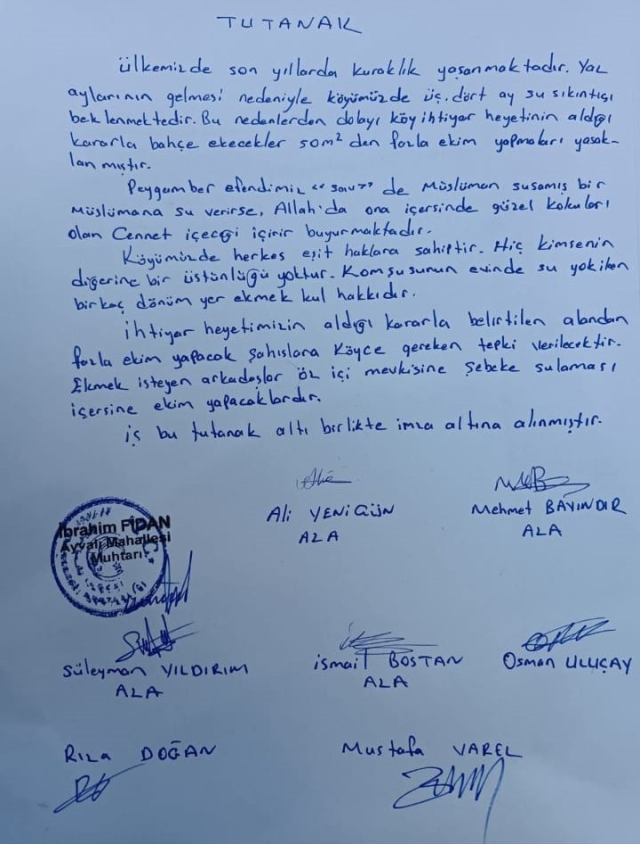 TUTANAK
ülkemizde son yıllarda kuraklık yaşanmaktadır. Yaz
aylarının gelmesi nedeniyle köyümüzde üç, dört ay su sıkıntısı
beklenmektedir. Bu nedenlerden dolayı köy ihtiyar heyetinin aldığı
kararla bahçe ekecekler 50m² den fazla ekim yapmaları yasak-
lanmıştır.
Peygamber efendimiz "sav" de Müslüman susamış bir
Müslümana su verirse, Allah'da ona içersinde güzel kokuları
olan Cennet içeceği içirir buyurmaktadır.
Köyümüzde herkes eşit haklara sahiptir. Hiç kimsenin
diğerine bir üstünlüğü yoktur. Komşusunun evinde su yokiken
birkaç dönüm yer ekmek kul hakkıdır.
ihtiyar heyetimizin aldığı kararla belirtilen alandan
fazla ekim yapacak şahıslara Köyce gereken tepki verilecektir.
Ekmek isteyen arkadaşlar öz içi mevkisine şebeke sulaması
içersine ekim yapacaklardır.
iş bu tutanak altı birlikte imza altına alınmıştır.
Ali YENİGÜN
AZA
Mehmet BAYINDIR
AZA
İbrahim FİDAN
Ayvalı Mahallesi
Muhtarı
Süleyman YILDIRIM
AZA
ismail BOSTAN
AZA
Osman ULUÇAY
Rıza DOĞAN
Mustafa VAREL